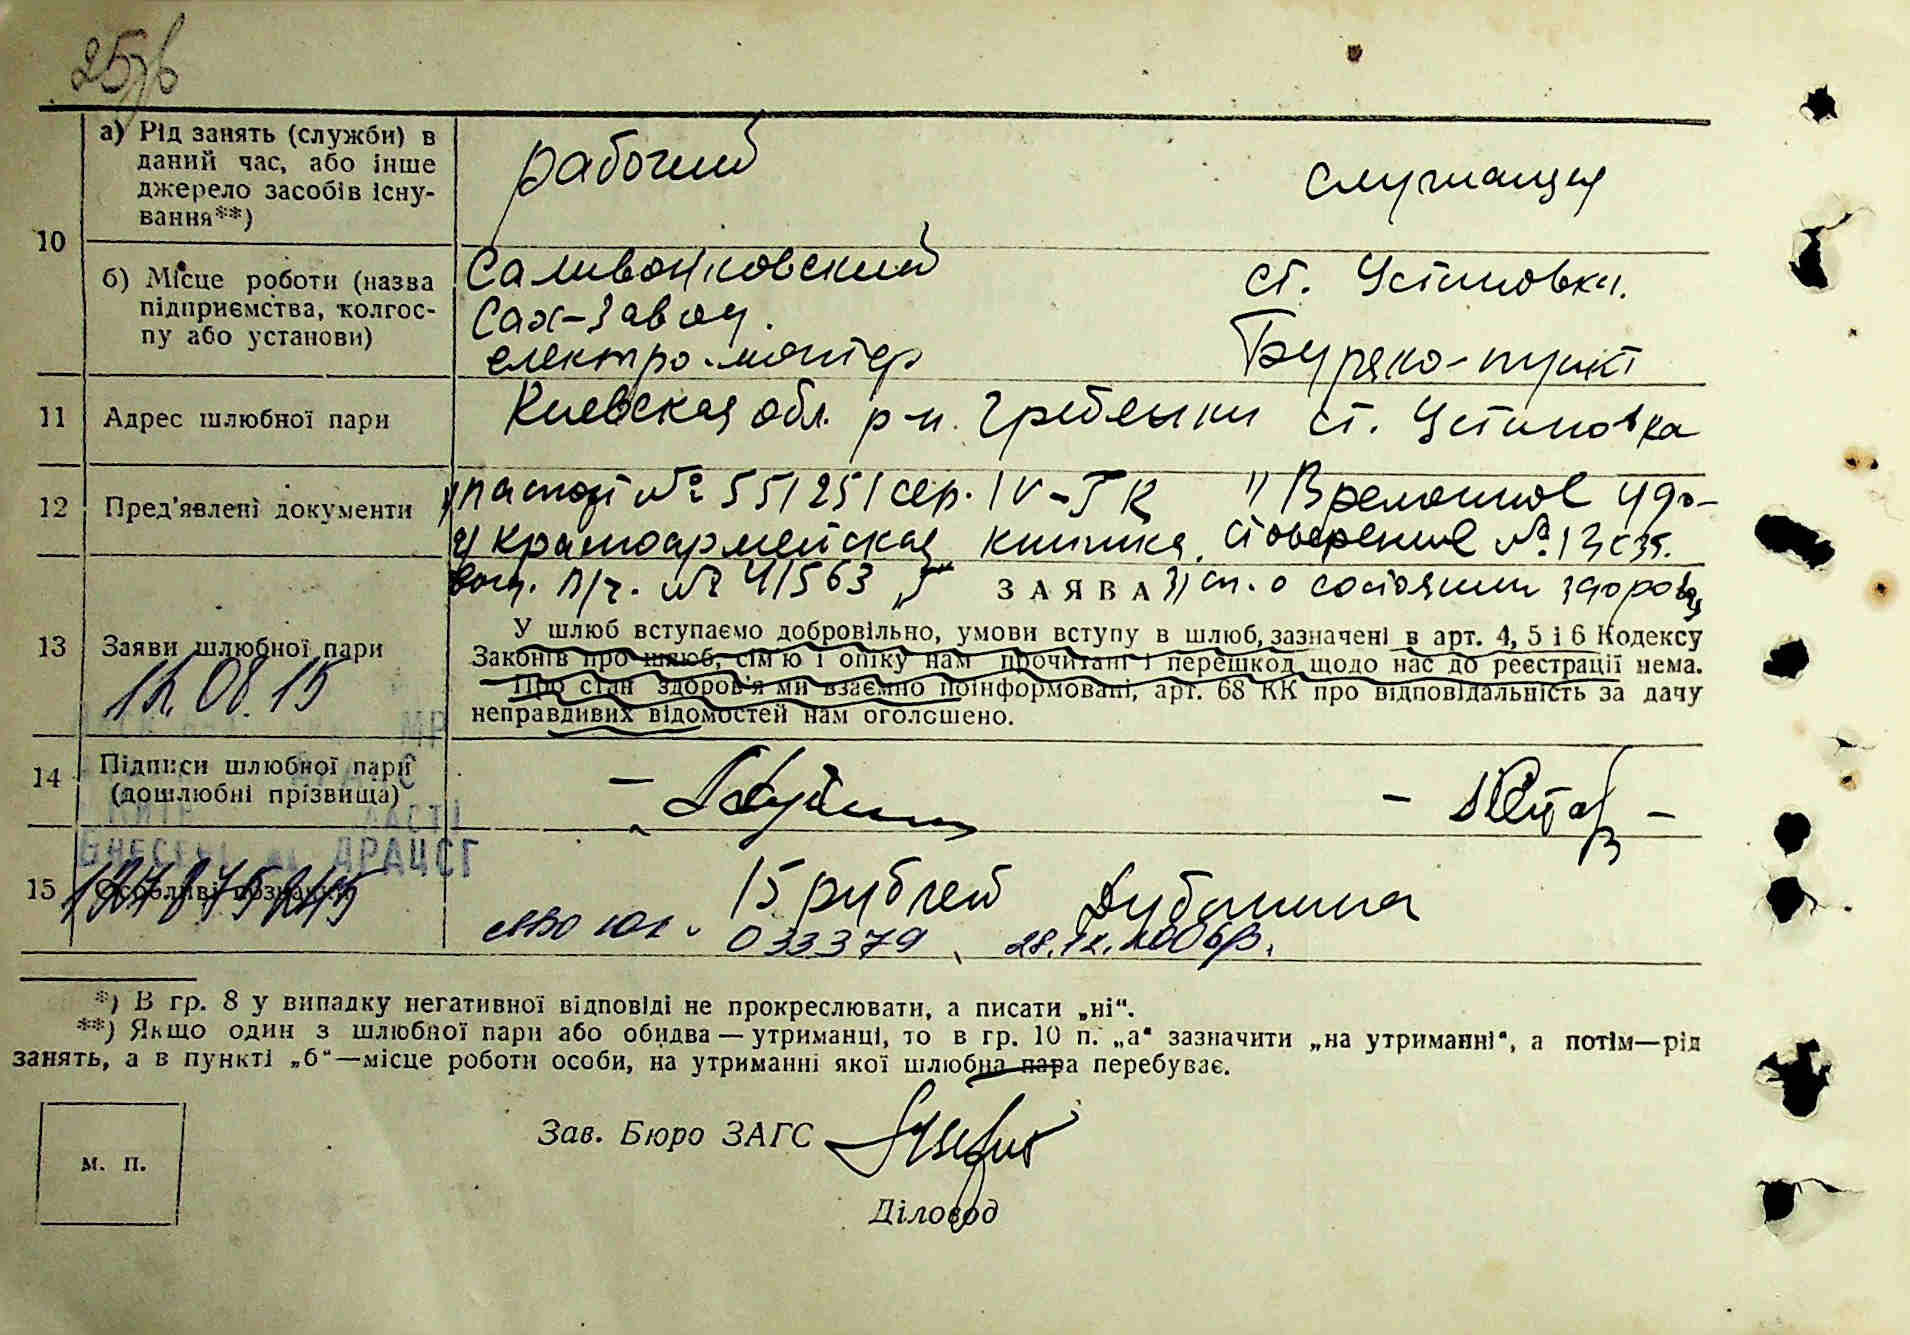 а) Рід занять (служби) в
даний час, або інше
джерело засобів існу-
вання**)
рабочий
служащая
10
б) Місце роботи (назва
підприємства, колгос-
пу або установи)
Саливонковский
Сах-завод.
електро-монтер
ст. Устиновка.
Буряко-пункт
11
Адрес шлюбної пари
Киевская обл. р-н. Гребенки ст. Устиновка
12
Пред'явлені документи
паспорт № 551251 сер. IV-ТК
2) Красноармейская книжка
1) Временное удо-
стоверение №
ЗАЯВА
сп. о состоянии здоровья
13
Заяви шлюбної пари
У шлюб вступаємо добровільно, умови вступу в шлюб, зазначені в арт. 4, 5 і 6 Кодексу
Законів про шлюб, сім'ю і опіку нам прочитані і перешкод щодо нас до реєстрації нема.
Про стан здоров'я ми взаємно поінформовані, арт. 68 КК про відповідальність за дачу
неправдивих відомостей нам оголошено.
14
Підписи шлюбної пари
(дошлюбні прізвища)
ВНЕСЕНО ДО ДРАЦСГ
15
Особливі познач
15 рублей
033379
*) В гр. 8 у випадку негативної відповіді не прокреслювати, а писати „ні“.
**) Якщо один з шлюбної пари або обидва — утриманці, то в гр. 10 п. „а“ зазначити „на утриманні“, а потім—рід
занять, а в пункті „б“—місце роботи особи, на утриманні якої шлюбна пара перебуває.
Зав. Бюро ЗАГС
м. п.
Діловод